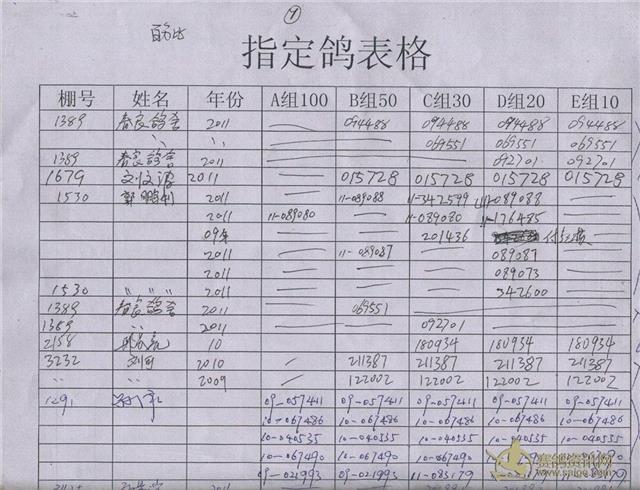 ①
指定鸽表格
棚号 姓名 年份 A组100 B组50 C组30 D组20 E组10
1389 春良鸽舍 2011 — 094488 094488 094488 094488
〃 〃 — — 069551 069551 069551
1389 春良鸽舍 2011 — — — 092701 092701
1679 2011 — 015728 015728 015728 015728
1530 2011 — 11-089088 11-342599 11-089088 —
2011 11-089080 — 11-089080 11-176485 —
09年 201436
2011 — 11-089087 — 089087 —
2011 — — — 089073 —
1530 〃 〃 〃 2011 — — — 342600 —
1389 春良鸽舍 2011 — 069551 — — —
1389 〃 2011 — — 092701 — —
2158 10 180934 180934 180934
3232 刘河 2010 — 211387 211387 211387 211387
〃 2009 — 122002 122002 122002 122002
1291 09-057411 09-057411 09-057411 09-057411 09-057411
10-067486 10-067486 10-067486 10-067486 10-067486
10-040535 10-040535 10-040535 10-040535 10-040535
10-067490 10-067490 10-067490 10-067490 10-067490
09-021993 09-021993 11-083179
赛鸽资讯网
www.saige.com